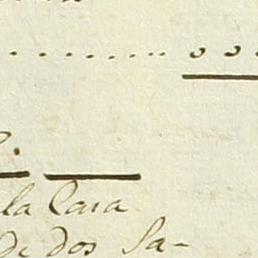 la Casa
de dos Sa-